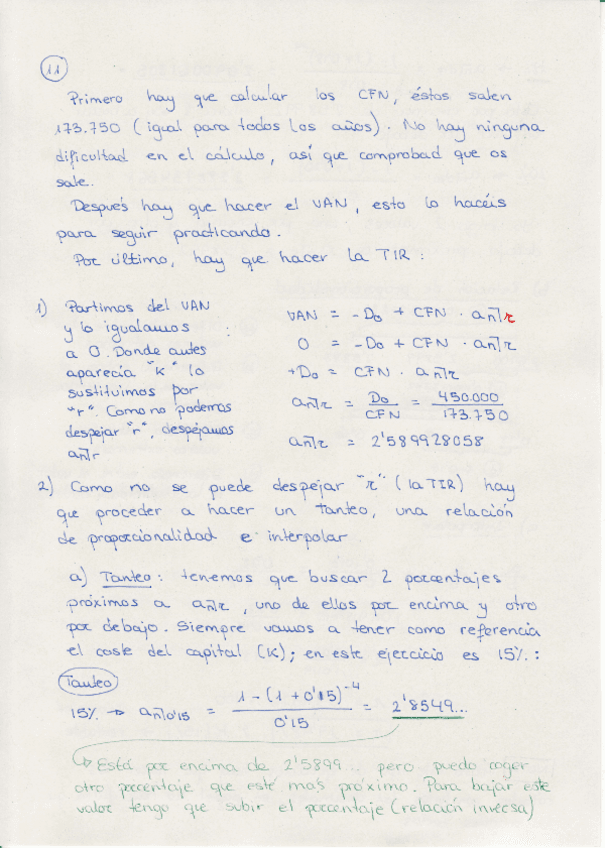 11
Primero hay que calcular los CFN, éstos salen
173.750 (igual para todos los años). No hay ninguna
dificultad en el cálculo, así que comprobad que os
sale.
Después hay que hacer el VAN, esto lo hacéis
para seguir practicando.
Por último, hay que hacer la TIR:
1) Partimos del VAN
y lo igualamos
a 0. Donde antes
aparecía "k" lo
sustituimos por
"r". Como no podemos
despejar "r", despejamos
an⌉r
VAN = -Do + CFN · an⌉r
0 = -Do + CFN · an⌉r
+Do = CFN · an⌉r
an⌉r = Do/CFN = 450.000/173.750
an⌉r = 2'589928058
2) Como no se puede despejar "r" (la TIR) hay
que proceder a hacer un tanteo, una relación
de proporcionalidad e interpolar
a) Tanteo: tenemos que buscar 2 porcentajes
próximos a an⌉r, uno de ellos por encima y otro
por debajo. Siempre vamos a tener como referencia
el coste del capital (K); en este ejercicio es 15%:
Tanteo
15% → an⌉0'15 = 1-(1+0'15)^-4 / 0'15 = 2'8549...
Está por encima de 2'5899... pero puedo coger
otro porcentaje que esté más próximo. Para bajar este
valor tengo que subir el porcentaje (relación inversa)